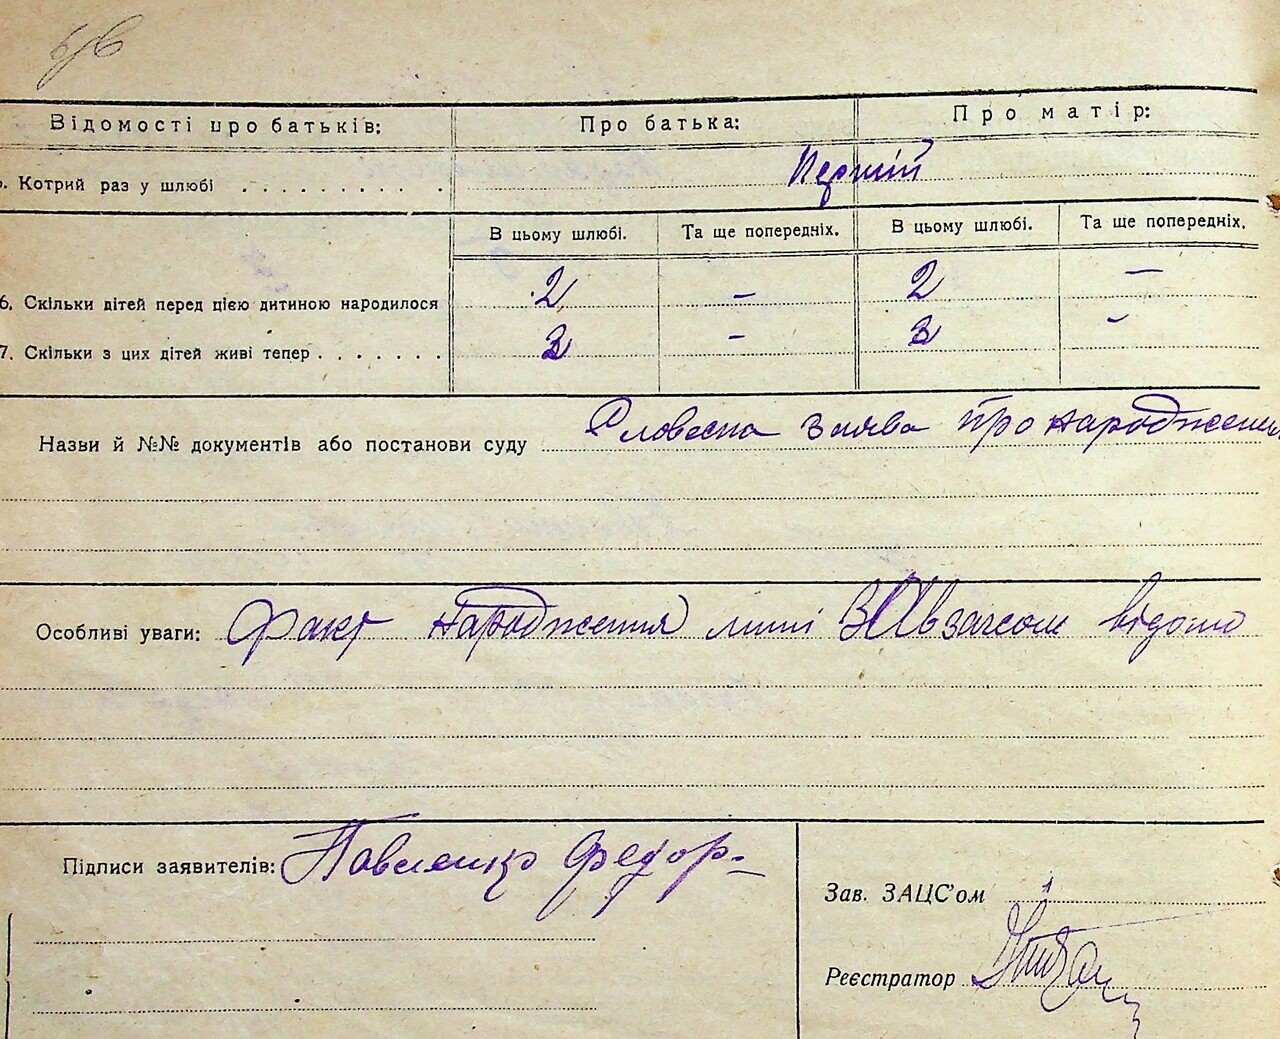 Відомості про батьків: Про батька: Про матір:
Котрий раз у шлюбі Перший
В цьому шлюбі. Та ще попередніх. В цьому шлюбі. Та ще попередніх.
6. Скільки дітей перед цією дитиною народилося 2 – 2 –
7. Скільки з цих дітей живі тепер 3 – 3 -
Назви й №№ документів або постанови суду Словесна заява про народження
Особливі уваги: Факт народження мині ЗАвзагсом відомо
Підписи заявителів: Павленко Федор-
Зав. ЗАЦС'ом
Реєстратор